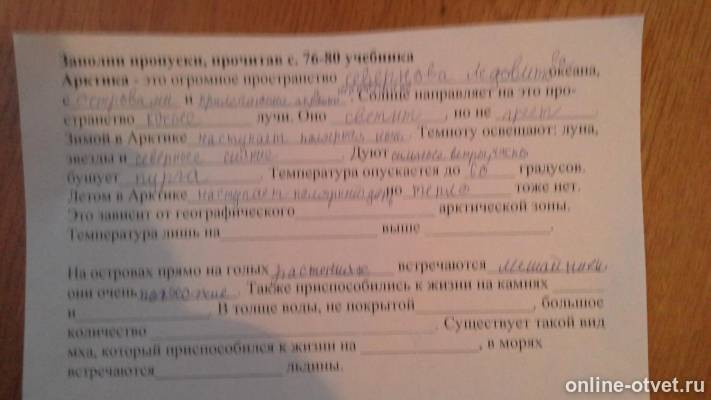 Заполни пропуски, прочитав с. 76-80 учебника
Арктика - это огромное пространство севернова ледовитова океана,
с островами и . Солнце направляет на это про-
странство косые лучи. Оно светит, но не греет.
Зимой в Арктике наступает полярная ночь. Темноту освещают: луна,
звезды и северное сияние. Дуют сильные ветры, очень
бушует пурга. Температура опускается до 60 градусов.
Летом в Арктике наступает полярный день, но тепла тоже нет.
Это зависит от географического ____ арктической зоны.
Температура лишь на ____ выше ____.
На островах прямо на голых растениях встречаются лешайники
они очень похожие. Также приспособились к жизни на камнях ____
и ____. В толще воды, не покрытой ____, большое
количество ____. Существует такой вид
мха, который приспособился к жизни на ____, в морях
встречаются ____ льдины.
online-otvet.ru